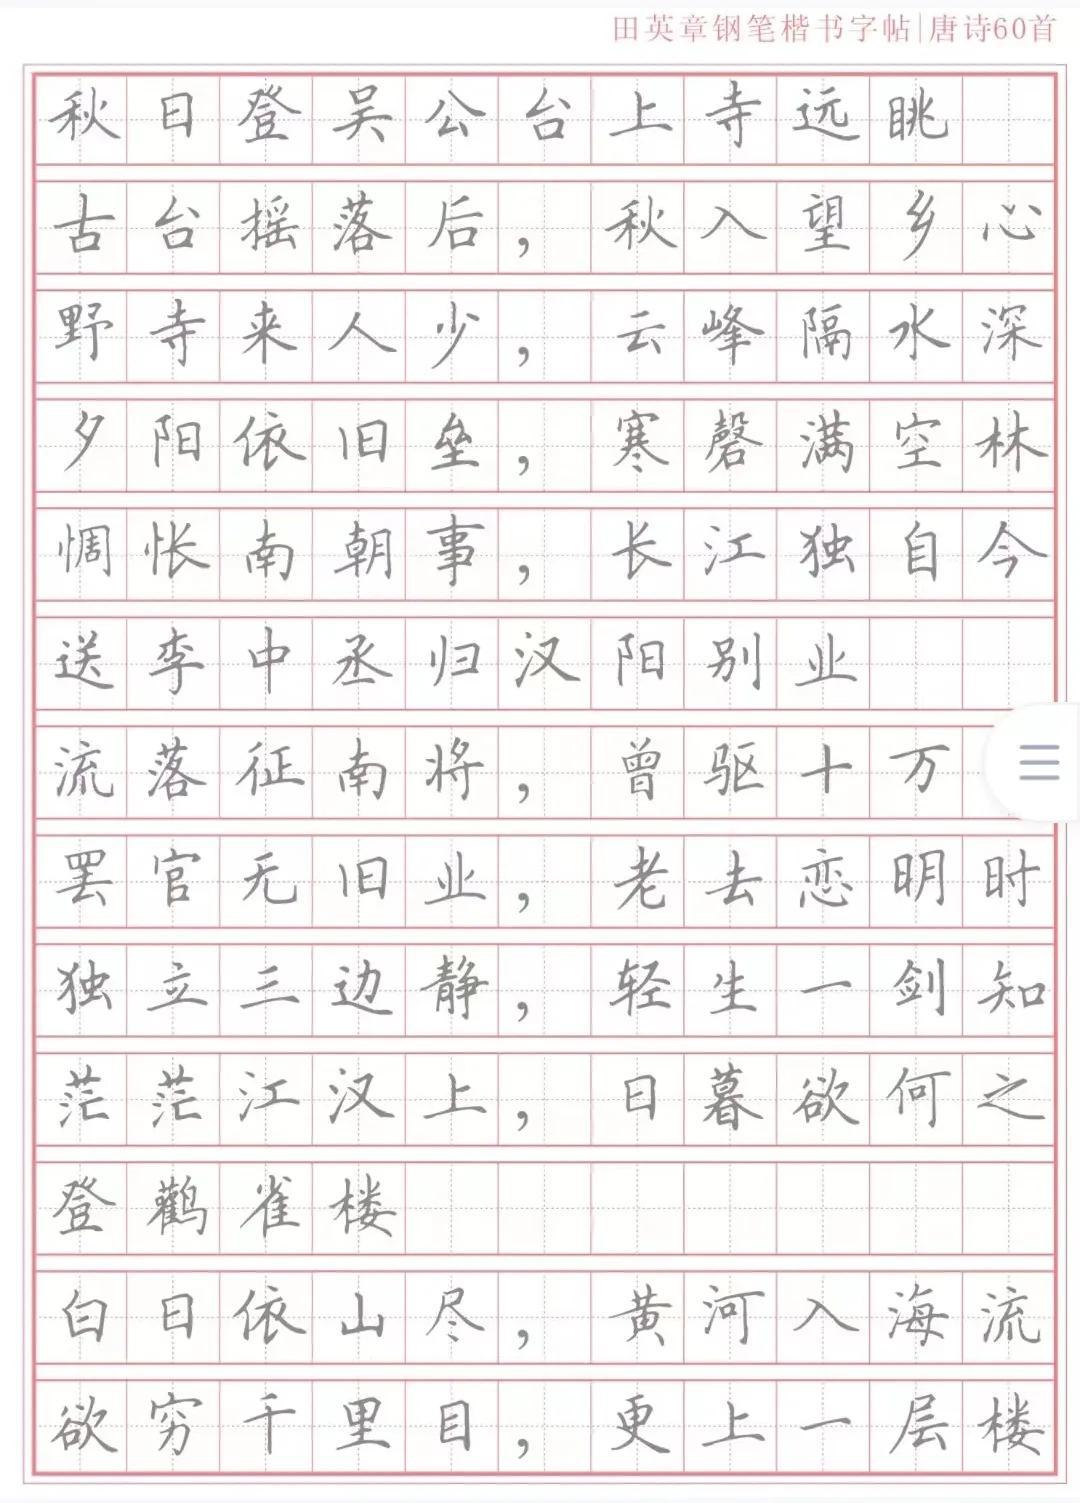 田英章钢笔楷书字帖|唐诗60首
秋日登吴公台上寺远眺
古台摇落后，秋入望乡心
野寺来人少，云峰隔水深
夕阳依旧垒，寒磬满空林
惆怅南朝事，长江独自今
送李中丞归汉阳别业
流落征南将，曾驱十万
罢官无旧业，老去恋明时
独立三边静，轻生一剑知
茫茫江汉上，日暮欲何之
登鹳雀楼
白日依山尽，黄河入海流
欲穷千里目，更上一层楼